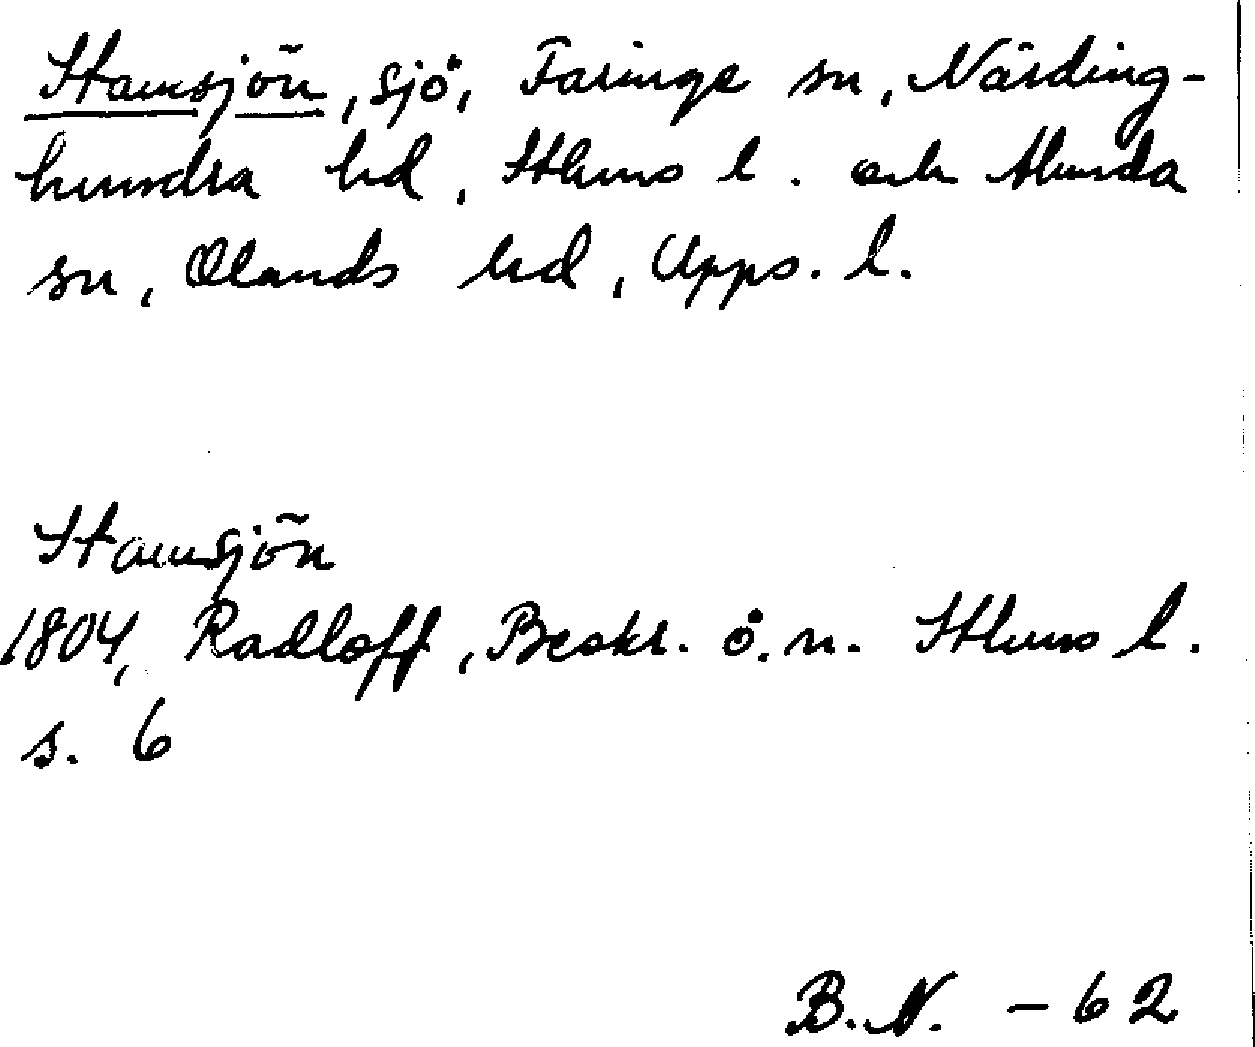 Stamsjön, sjö, Faringe sn, Närding-
hundra hd, Sthlms l. och Alunda
sn, Olands hd, Upps. l.
Stamsjön
1804, Radloff, Beskr. ö. n. Sthlms l.
s. 6
B.N. - 62